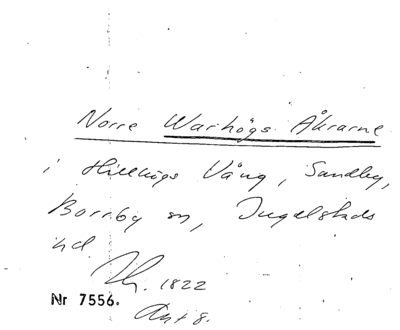 Norre Warhögs Åkrarne
i Hillhögs Vång, Sandby,
Borrby sn, Ingelstads
hd.
1822
Nr 7556.
Akt 8.